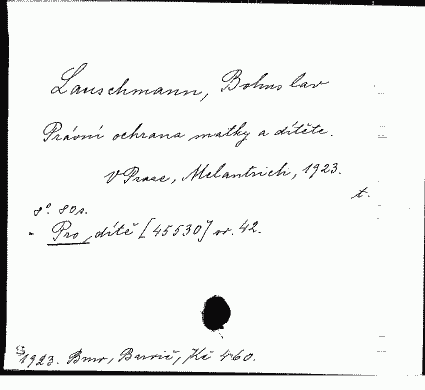 Lauschmann, Bohuslav
Právní ochrana matky a dítěte.
V Praze, Melantrich, 1923.
t.
8°. 80 s.
- Pro dítě [45530] sv. 42.
S
1923. Brno, Burič, Kč 4·60.